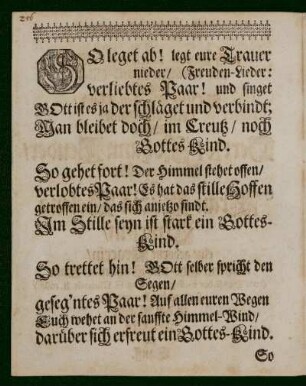 206
SO leget ab! legt eure Trauer
nieder/ (Freuden-Lieder:
verliebtes Paar! und singet
GOtt ist es ja der schläget und verbindt;
Man bleibet doch/ im Creutz/ noch
Gottes Kind.
So gehet fort! Der Himmel stehet offen/
verlobtes Paar! Es hat das stille Hoffen
getroffen ein/ das sich anjetzo findt.
Im Stille seyn ist stark ein Gottes-
Kind.
So trettet hin! GOtt selber spricht den
Segen/
geseg'ntes Paar! Auf allen euren Wegen
Euch wehet an der sanffte Himmel-Wind/
darüber sich erfreut ein Gottes-Kind.
So